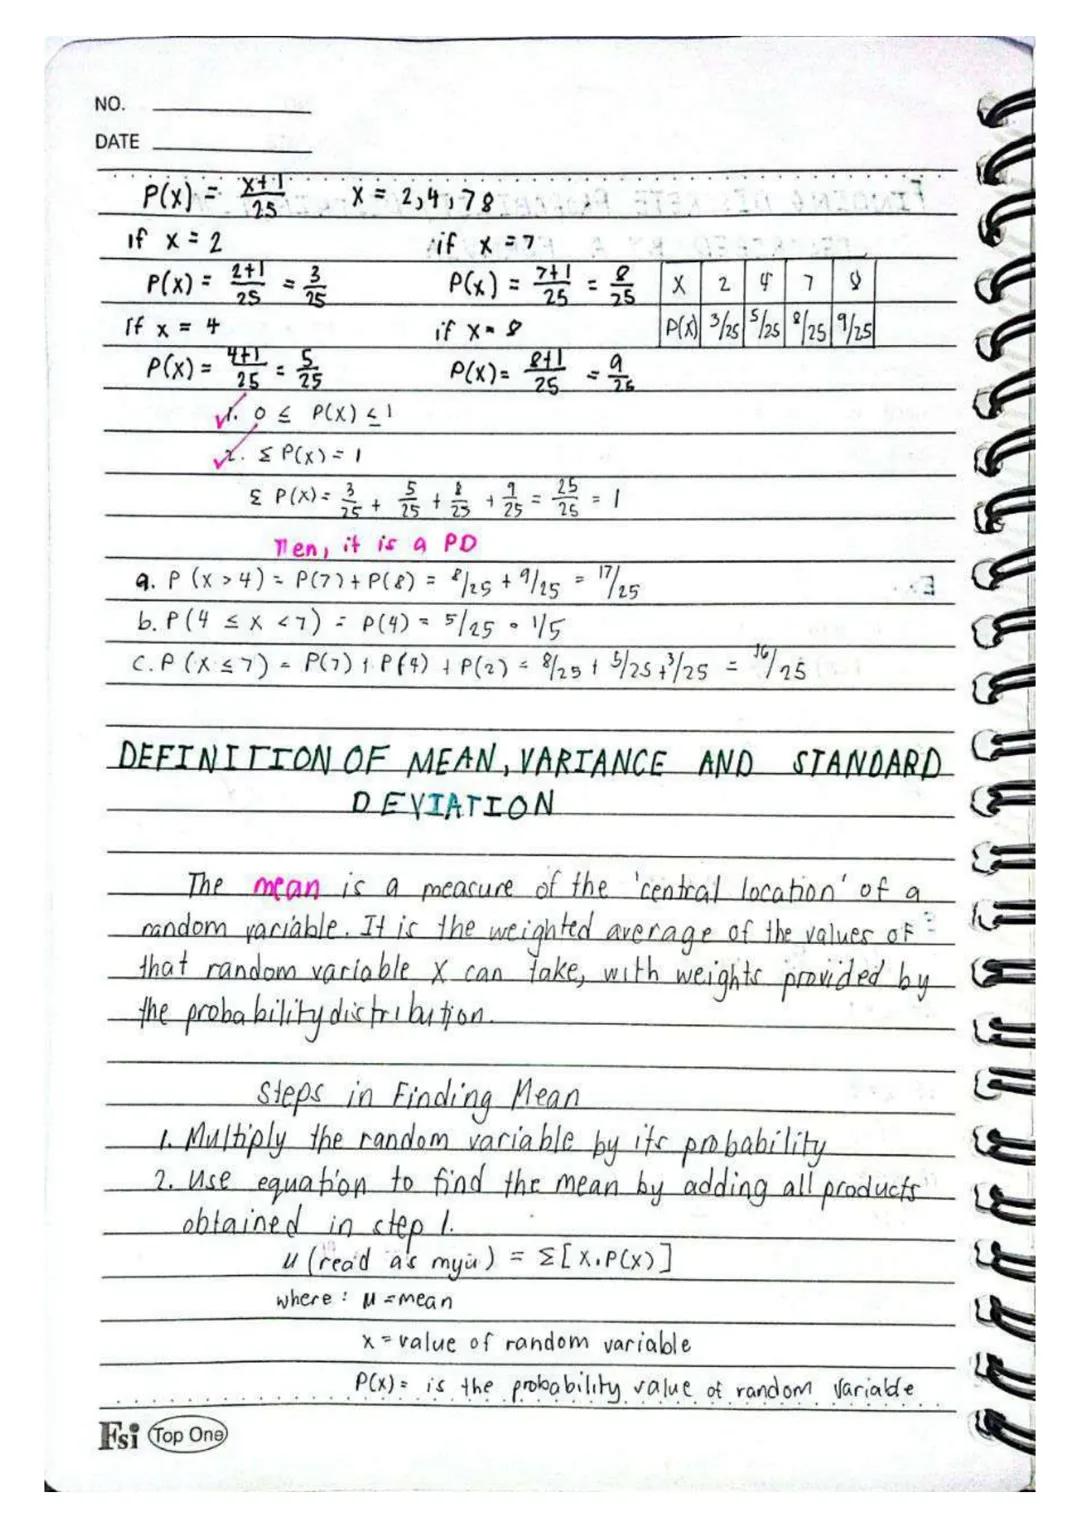 NO.
DATE
P(x) = x+1/25   x = 2,4,78
if x = 2   if x = 7
P(x) = 2+1/25 = 3/25   P(x) = 7+1/25 = 8/25   X 2 4 7 8
If x = 4   if x = 8   P(x) 3/25 5/25 8/25 9/25
P(x) = 4+1/25 = 5/25   P(x) = 8+1/25 = 9/25
1. 0 ≤ P(X) ≤ 1
2. Σ P(x) = 1
Σ P(x) = 3/25 + 5/25 + 8/25 + 9/25 = 25/25 = 1
Then, it is a PD
a. P (x > 4) = P(7) + P(8) = 8/25 + 9/25 = 17/25
b. P (4 ≤ x < 7) = P(4) = 5/25 = 1/5
C. P (x ≤ 7) = P(7) + P(4) + P(2) = 8/25 + 5/25 + 3/25 = 16/25
DEFINITION OF MEAN, VARIANCE AND STANDARD
DEVIATION
The mean is a measure of the 'central location' of a
random variable. It is the weighted average of the values of
that random variable X can take, with weights provided by
the probability distribution.
Steps in Finding Mean
1. Multiply the random variable by its probability
2. Use equation to find the mean by adding all products
obtained in step 1.
μ (read as myu) = Σ[X.P(X)]
where : μ = mean
x = value of random variable
P(x) = is the probability value of random variable
Fsi Top One